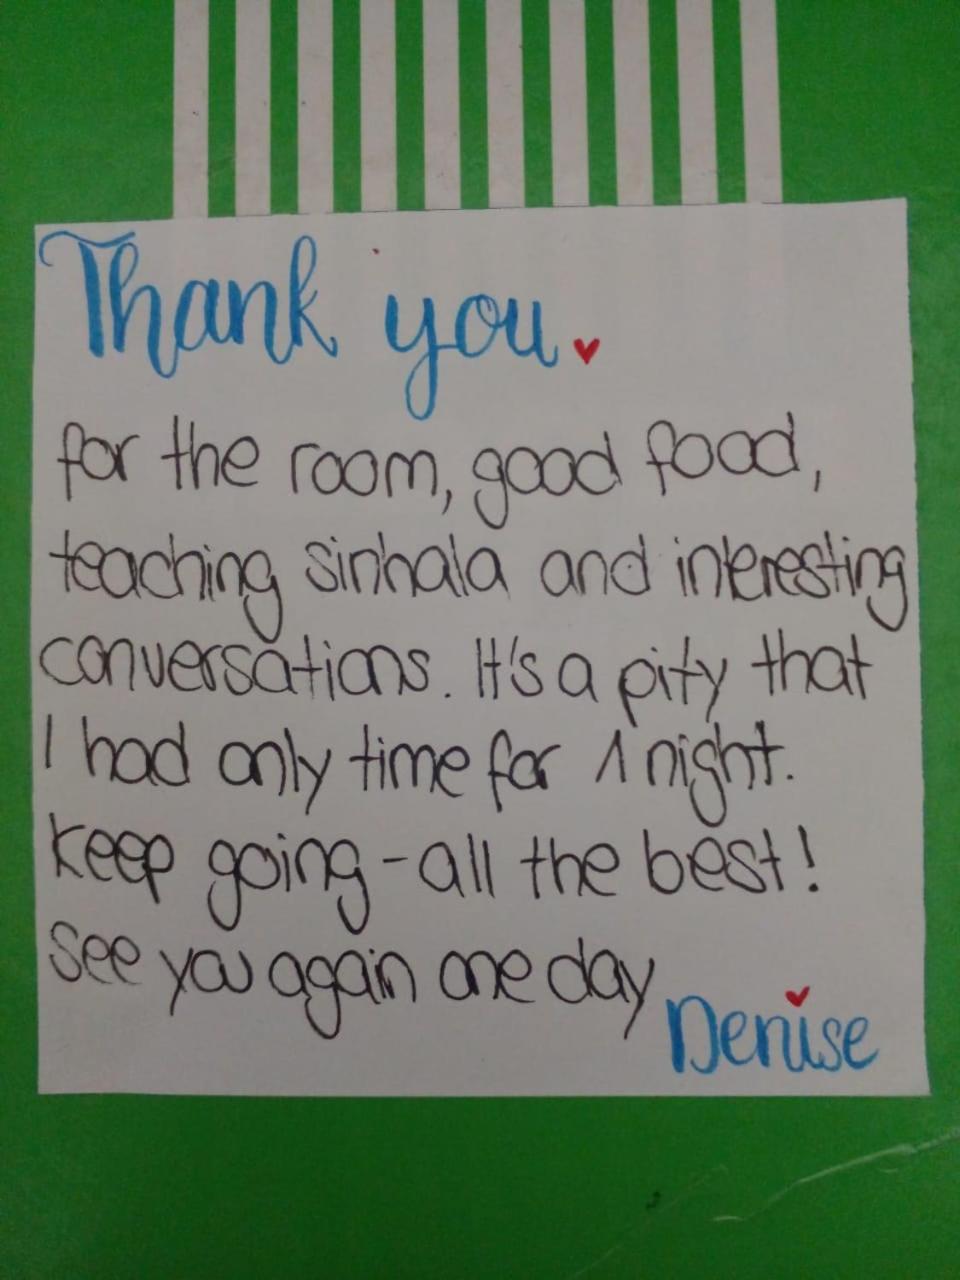 Thank you.
for the room, good food,
teaching sinhala and interesting
conversations. It's a pity that
I had only time for 1 night.
Keep going - all the best!
See you again one day
Denise